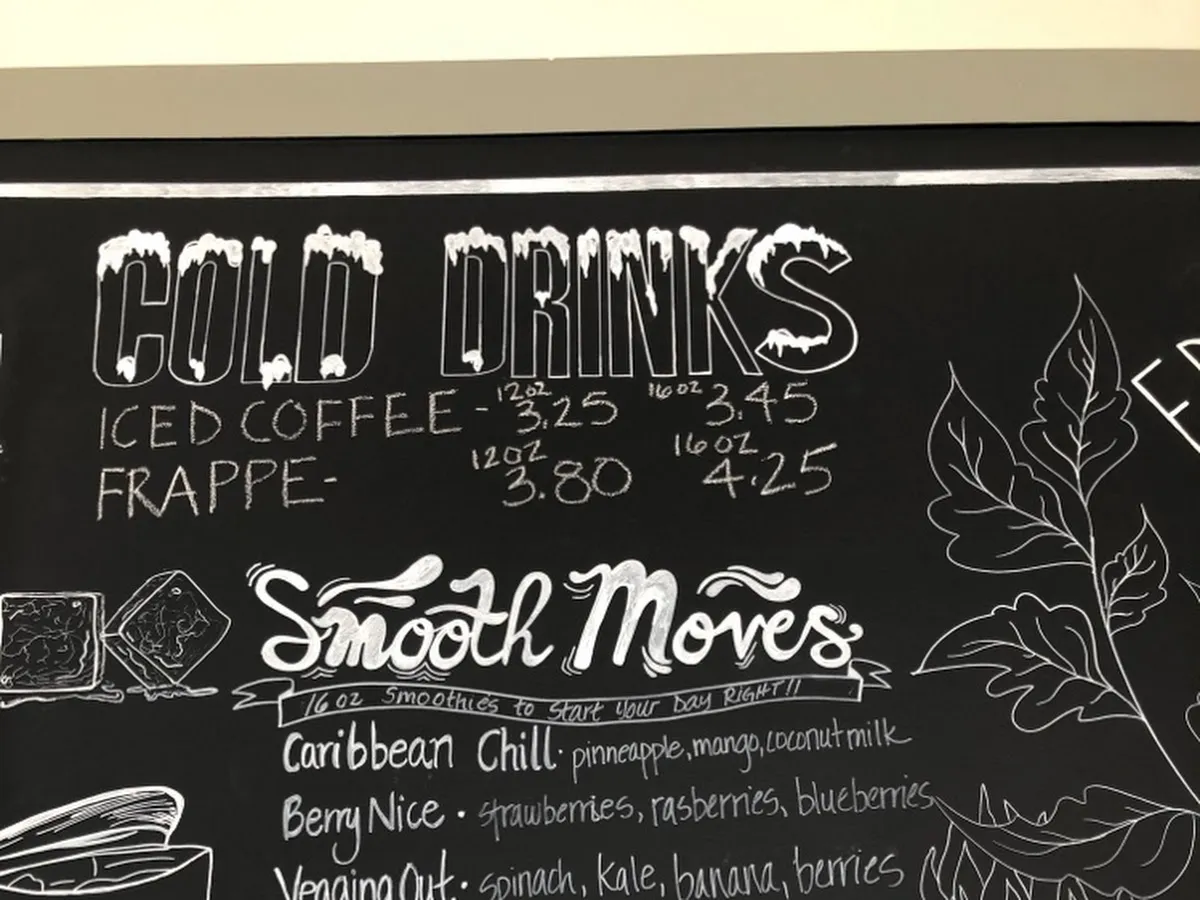 COLD DRINKS
ICED COFFEE - 12oz 3.25 16oz 3.45
FRAPPE- 12OZ 3.80 16OZ 4.25
Smooth Moves
16 oz Smoothies to Start Your Day RIGHT!!
Caribbean Chill · pinneapple, mango, coconut milk
Berry Nice · strawberries, rasberries, blueberries
Vegging Out · spinach, kale, banana, berries